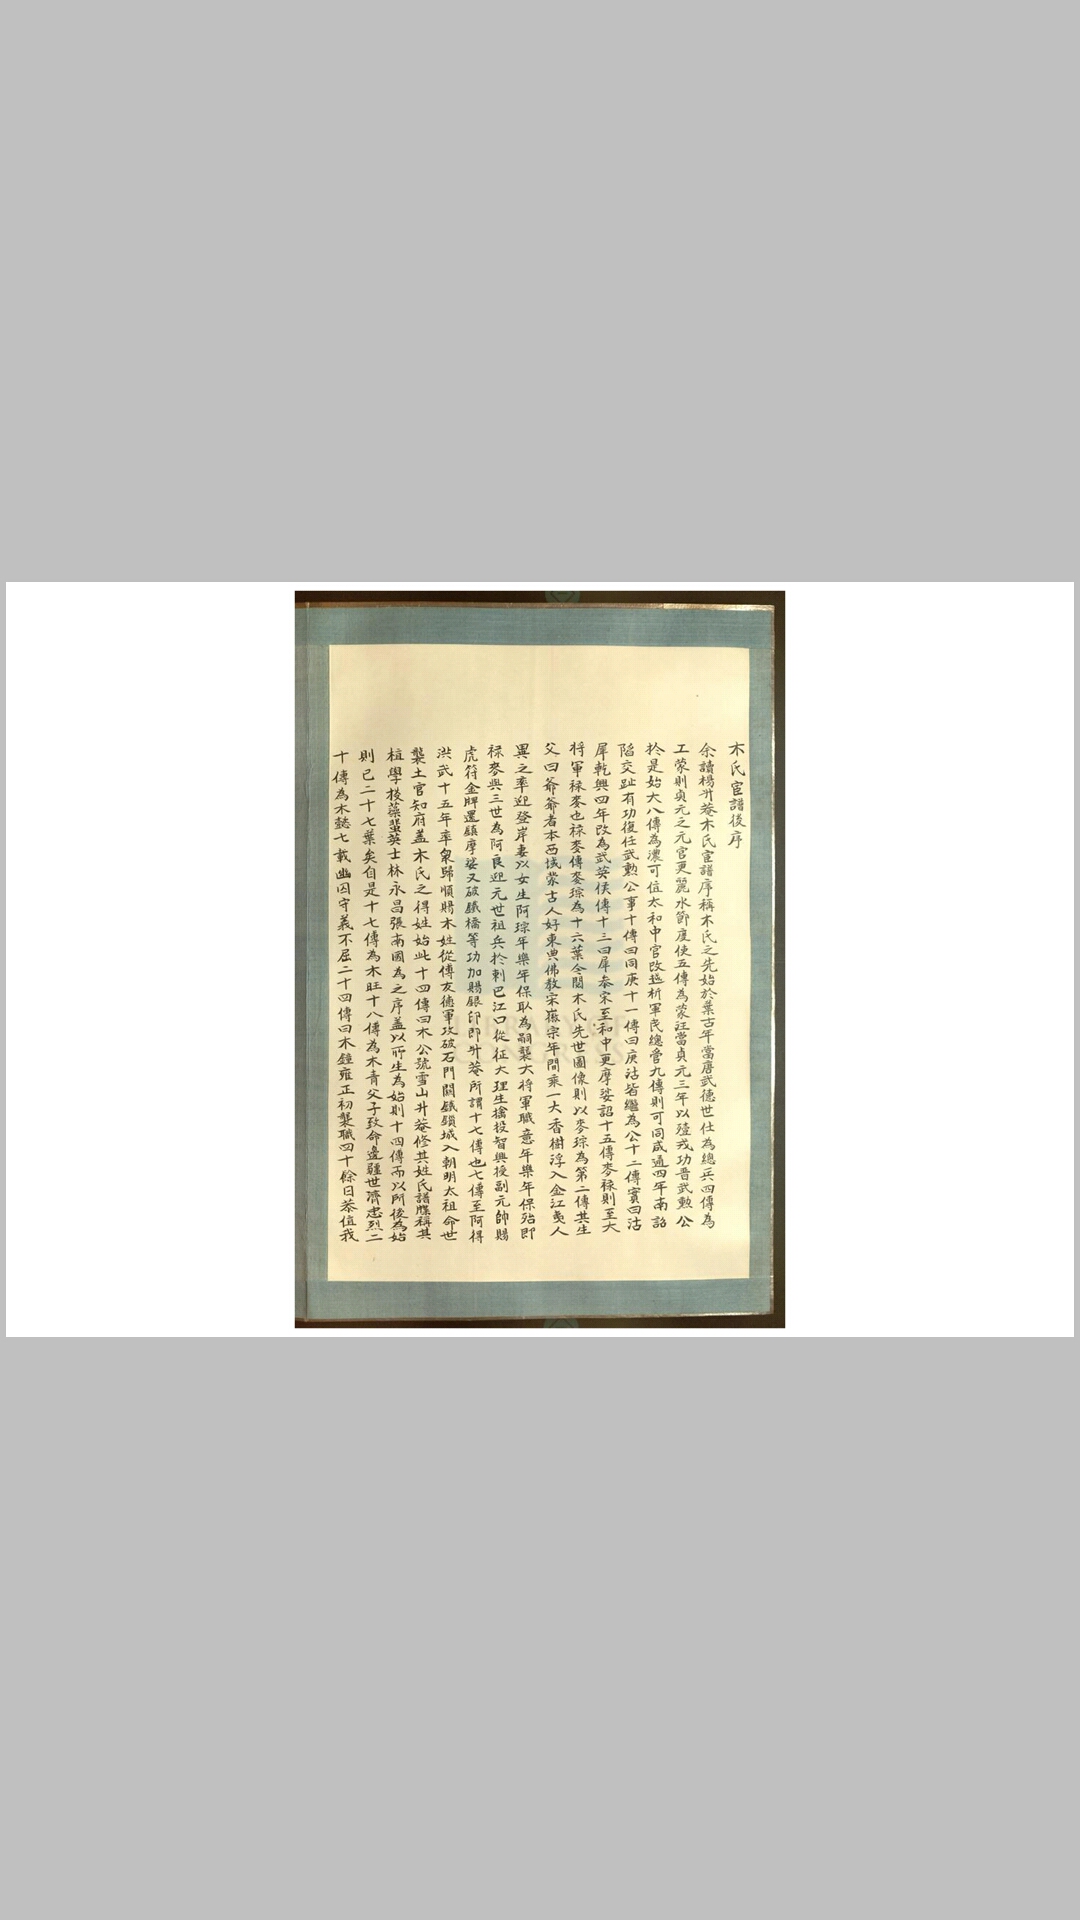 木氏宦譜後序
余讀楊升菴木氏宦譜序稱木氏之先始於葉古年當唐武德世仕為總兵四傳為
工蒙則貞元之元官更麗水節度使五傳為蒙汪當貞元三年以殪戎功晋武勲公
於是始大八傳為濃可信太和中官改越析軍民總管九傳則可同咸通四年南詔
陷交趾有功復任武勲公事十傳曰同庚十一傳曰庚沽皆繼為公十二傳實曰沽
犀乾興四年改為武英侯傳十三曰犀叅宋至和中更摩娑詔十五傳麥祿則至大
將軍祿麥也祿麥傳麥琮為十六葉今閱木氏先世圖像則以麥琮為第二傳其生
父曰爺爺者本西域蒙古人好東典佛教宋徽宗年間乘一大香樹浮入金江夷人
異之率迎登岸妻以女生阿琮年樂年保取為嗣襲大將軍職意年樂年保殆即
祿麥與三世為阿良迎元世祖兵於剌巴江口從征大理生擒投智興授副元帥賜
虎符金牌還鎮摩娑又破鐵橋等功加賜銀印即升菴所謂十七傳也七傳至阿得
洪武十五年率衆歸順賜木姓從傅友德軍攻破石門關鐵鎖城入朝明太祖命世
襲土官知府蓋木氏之得姓始此十四傳曰木公號雪山升菴修其姓氏譜牒稱其
植學掞藻蜚英士林永昌張南園為之序盖以所生為始則十四傳而以所後為始
則已二十七葉矣自是十七傳為木旺十八傳為木青父子致命邊疆世濟忠烈二
十傳為木懿七載幽囚守義不屈二十四傳曰木鍾雍正初襲職四十餘日恭值我